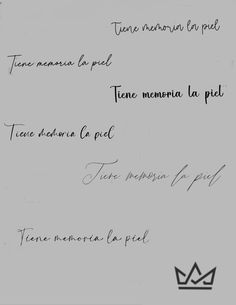 Tiene memoria la piel
Tiene memoria la piel
Tiene memoria la piel
Tiene memoria la piel
Tiene memoria la piel
Tiene memoria la piel